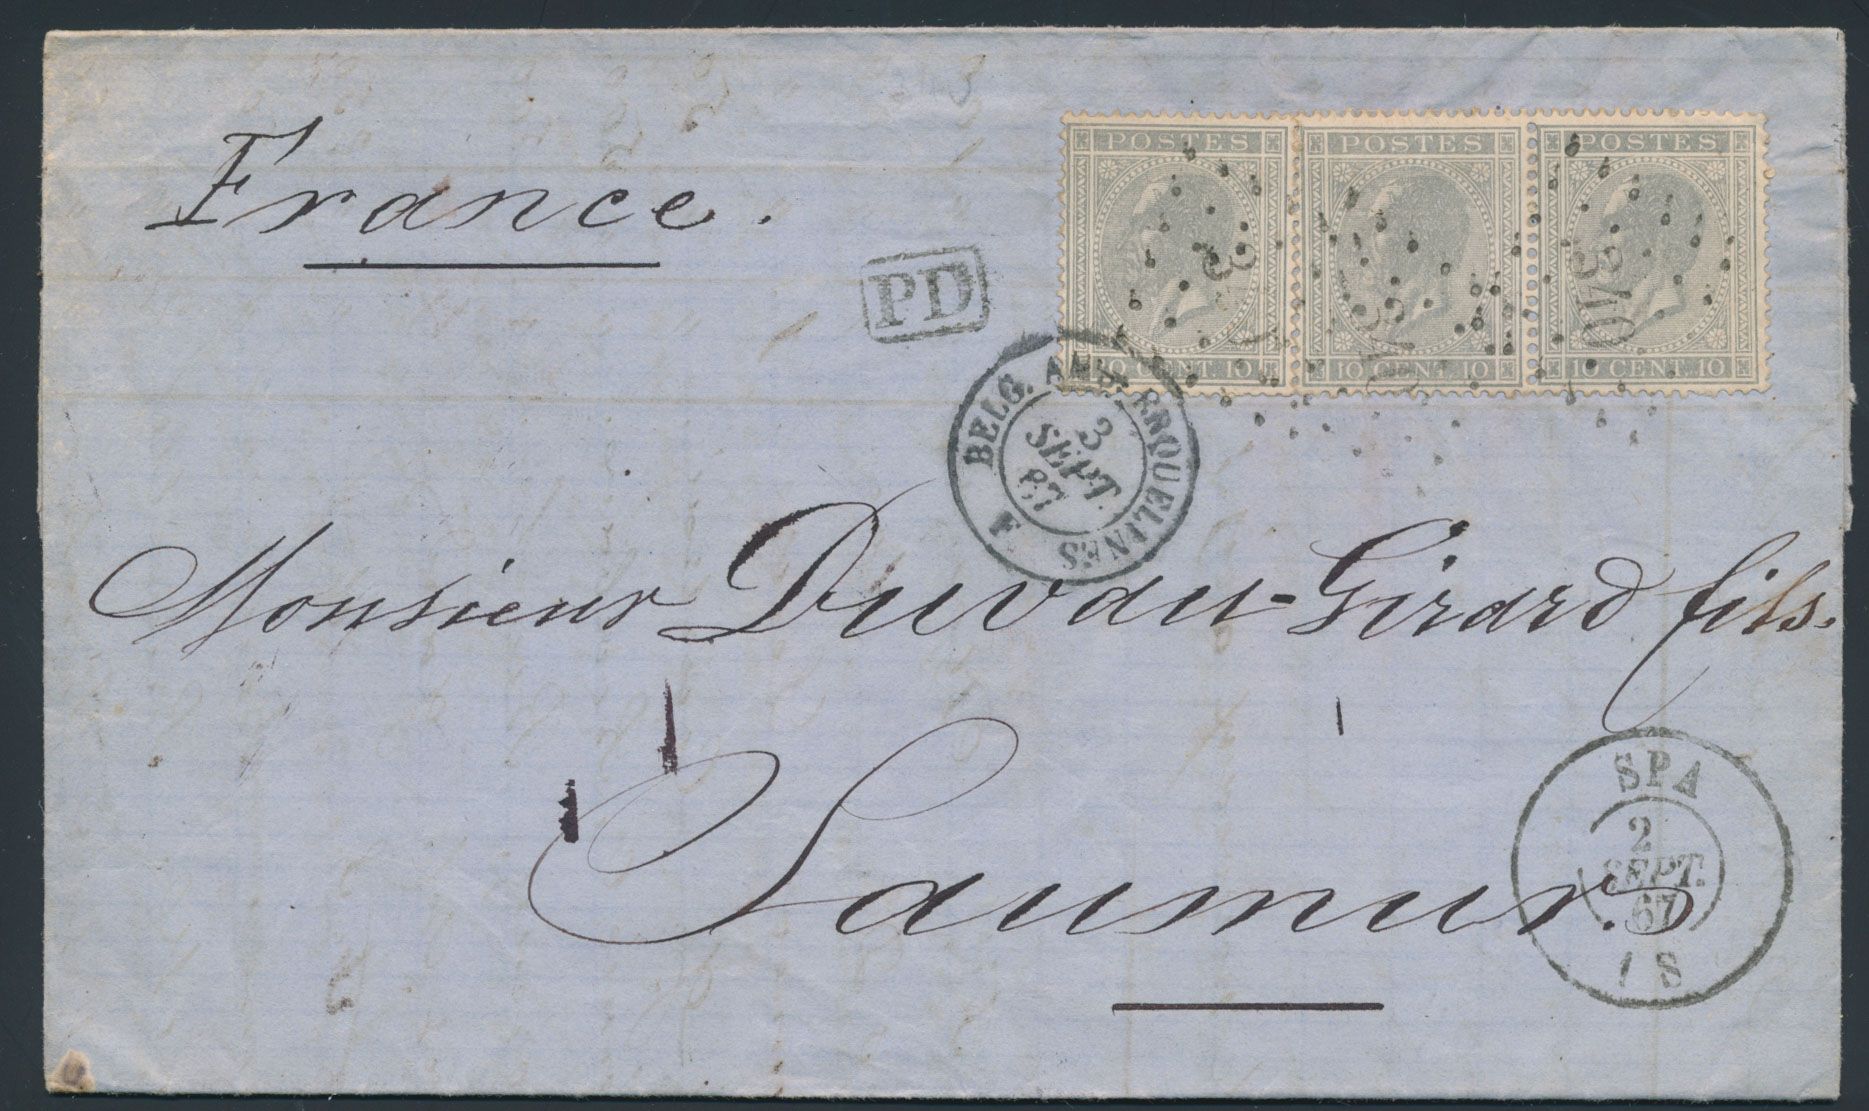 France.
PD
POSTES POSTES POSTES
340
10 CENT. 10 10 CENT. 10 10 CENT. 10
BELG. AMB. ERQUELINES F.
3
SEPT.
67
Monsieur Duvau-Girard fils.
Saumur.
SPA
2
SEPT.
67
1 S